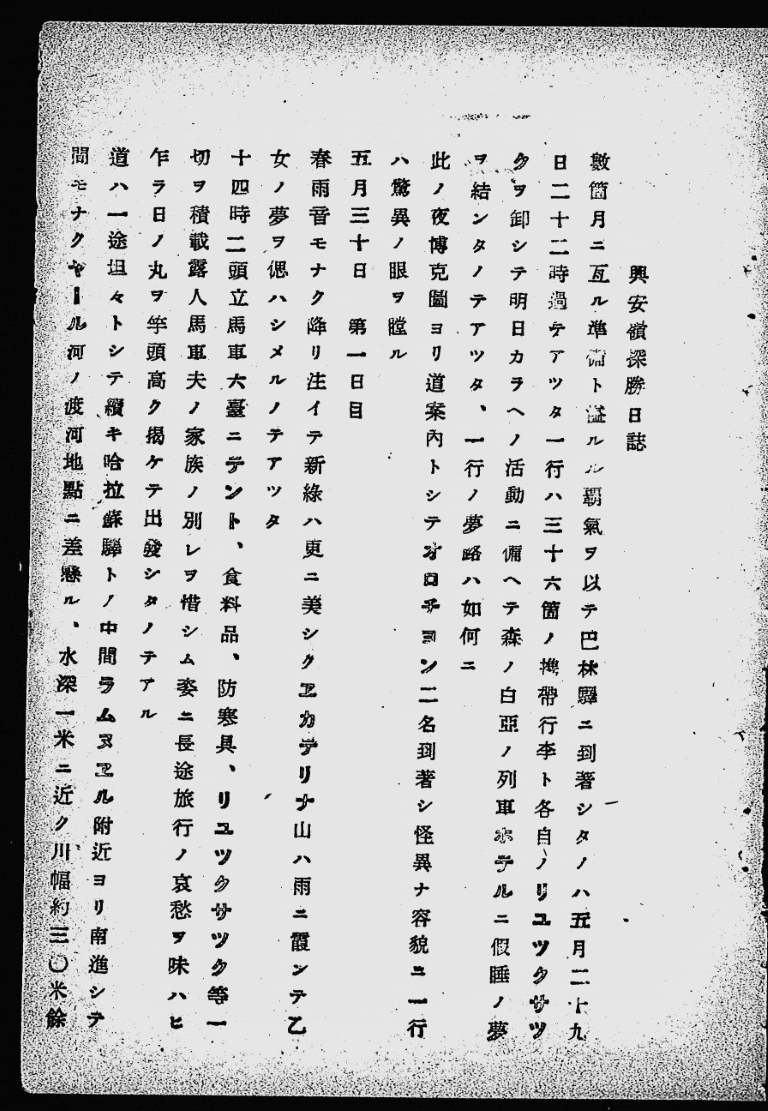 興安嶺探勝日誌
數箇月ニ亙ル準備ト溢ルル覇氣ヲ以テ巴林驛ニ到著シタノハ五月二十九
日二十二時過テアツタ一行ハ三十六箇ノ携帶行李ト各自ノリユツクサツ
クヲ卸シテ明日カラヘノ活動ニ備ヘテ森ノ白亞ノ列車ホテルニ假睡ノ夢
ヲ結ンタノテアツタ、一行ノ夢路ハ如何ニ
此ノ夜博克圖ヨリ道案內トシテオロチヨン二名到著シ怪異ナ容貌ニ一行
ハ驚異ノ眼ヲ瞠ル
五月三十日 第一日目
春雨音モナク降リ注イテ新綠ハ更ニ美シクヱカテリナ山ハ雨ニ霞ンテ乙
女ノ夢ヲ偲ハシメルノテアツタ
十四時二頭立馬車六臺ニテント、食料品、防寒具、リユツクサツク等一
切ヲ積載露人馬車夫ノ家族ノ別レヲ惜シム姿ニ長途旅行ノ哀愁ヲ味ハヒ
乍ラ日ノ丸ヲ竿頭高ク揭ケテ出發シタノテアル
道ハ一途坦々トシテ續キ哈拉蘇驛トノ中間ラムヌヱル附近ヨリ南進シテ
間モナクヤール河ノ渡河地點ニ差懸ル、水深一米ニ近ク川幅約三〇米餘